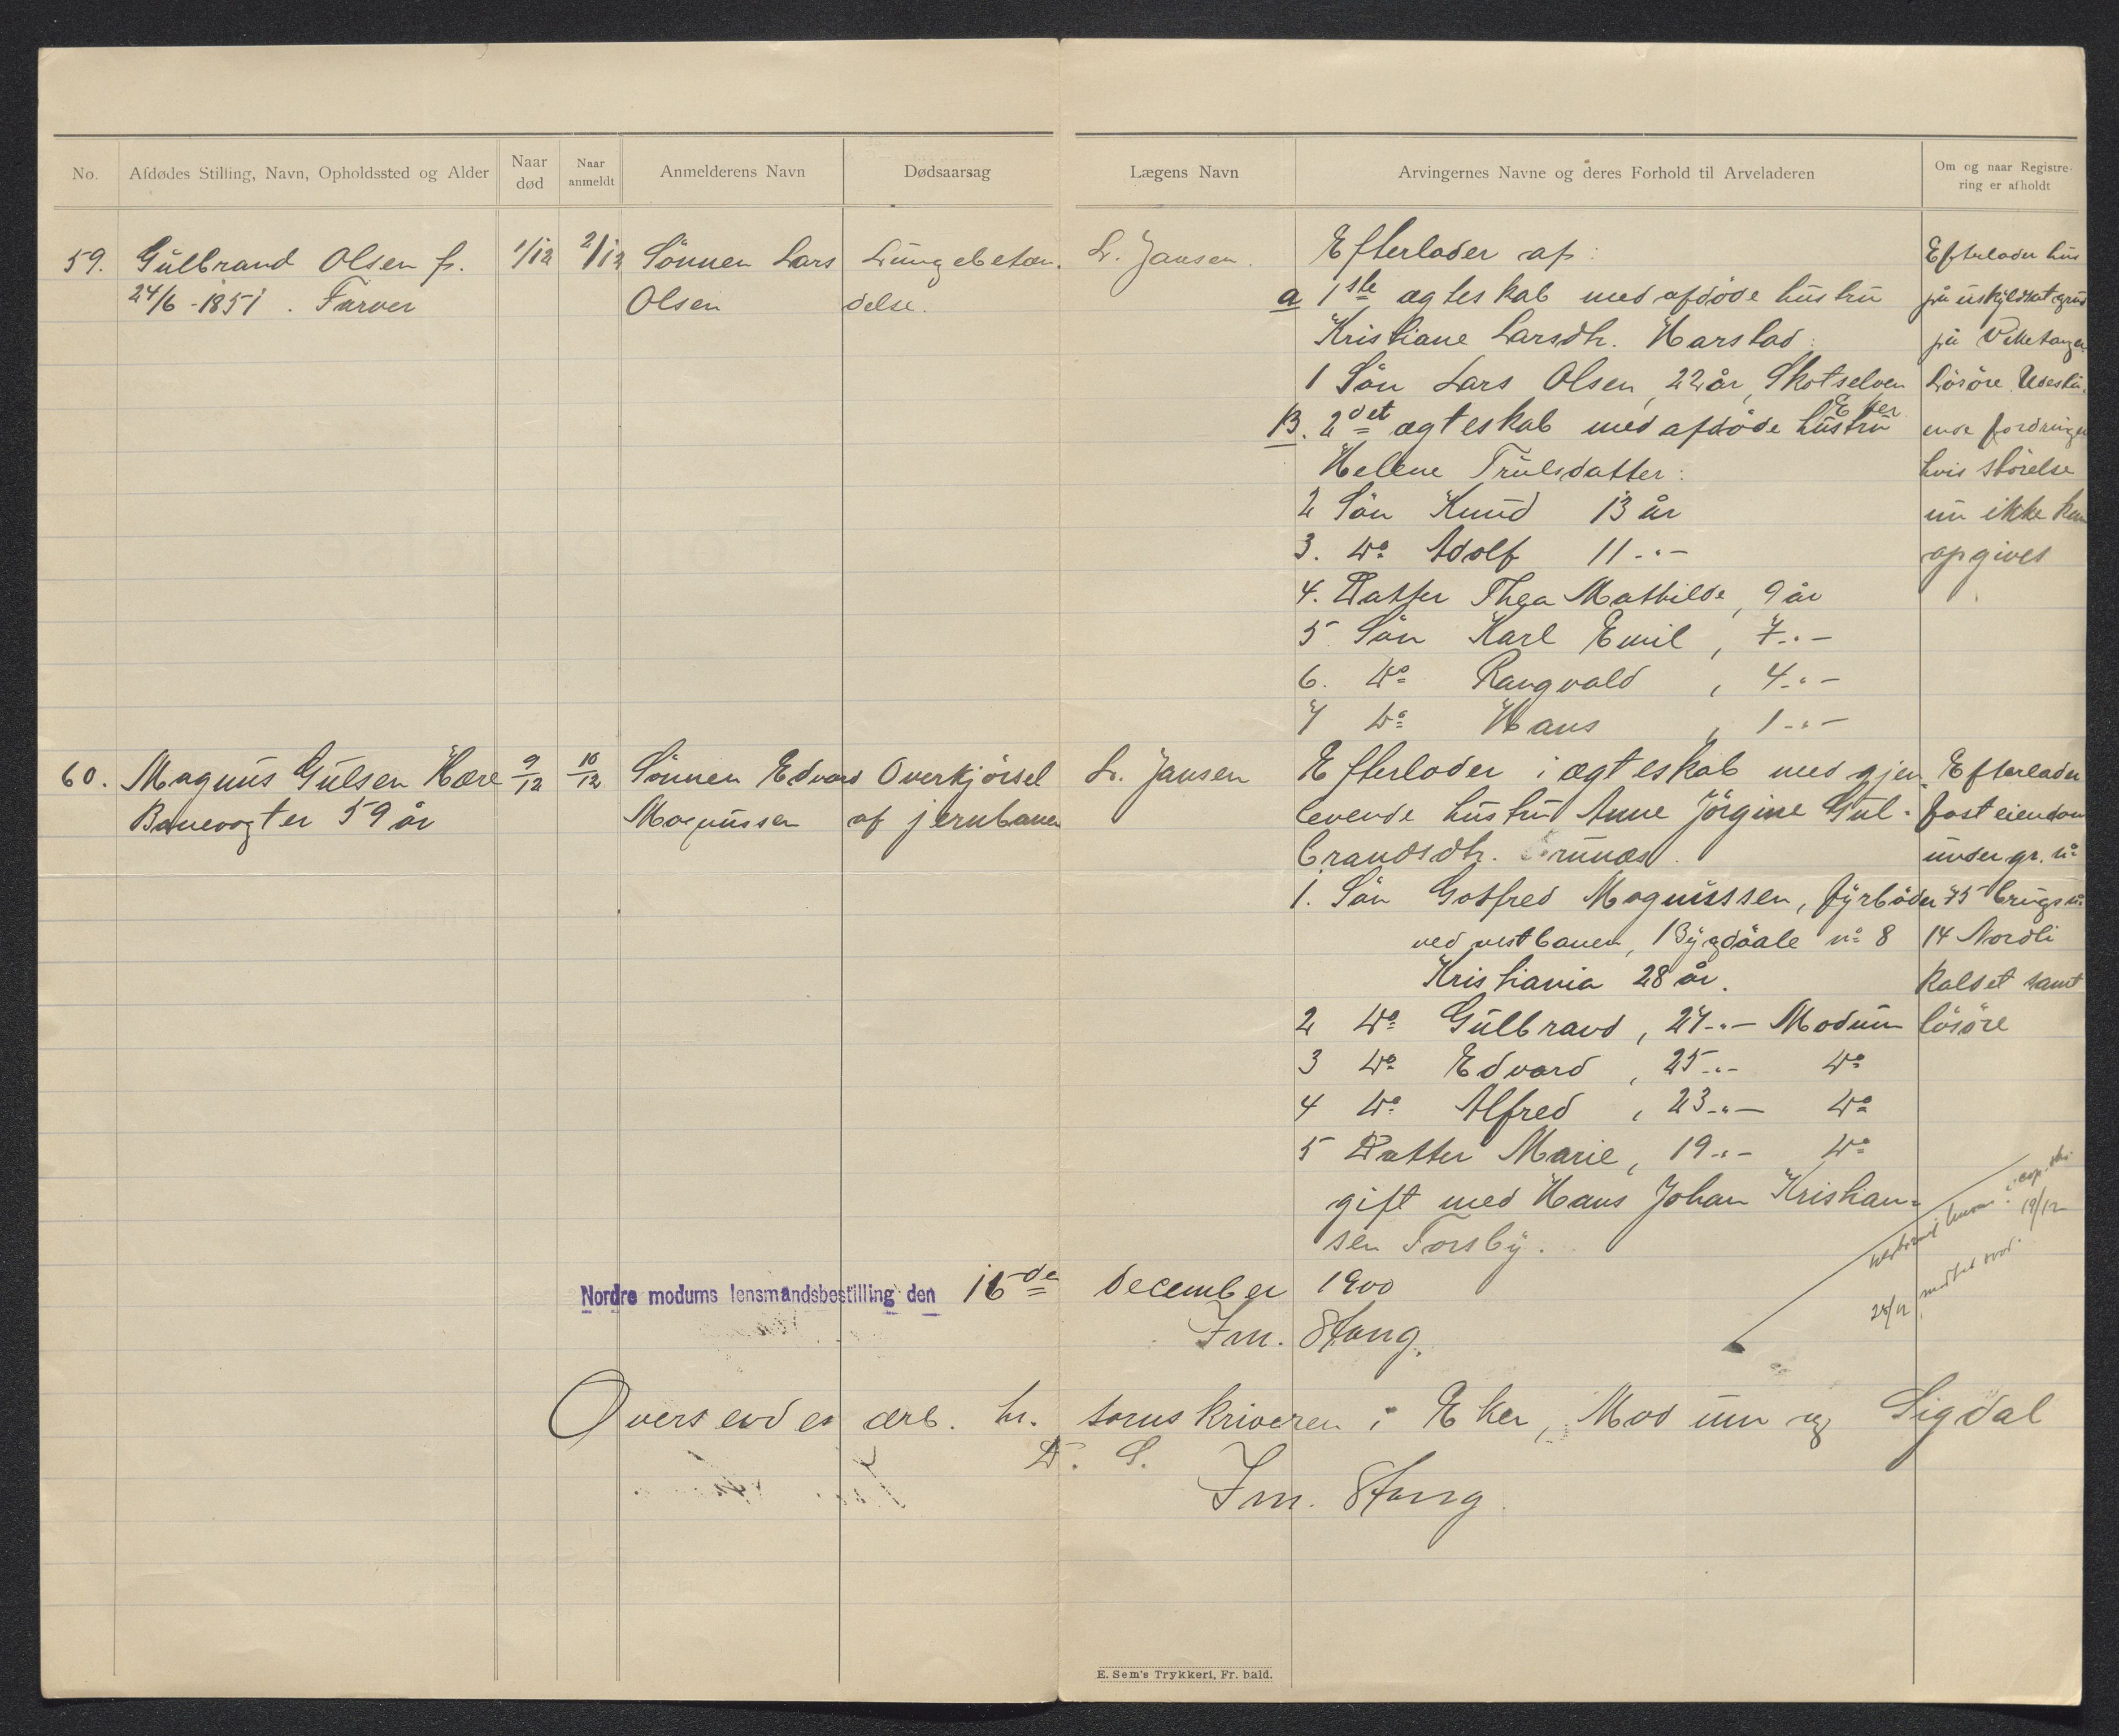 No.
Afdødes Stilling, Navn, Opholdssted og Alder
Naar død
Naar anmeldt
Anmelderens Navn
Dødsaarsag
Lægens Navn
Arvingernes Navne og deres Forhold til Arveladeren
Om og naar Registre-
ring er afholdt
59. Gulbrand Olsen f. 1/12 2/12 Sönnen Lars Lungebetæn- L. Jansen.
24/6-1851. Farver Olsen delse.
Efterlader af:
a 1ste ægteskab med afdøde hustru
Kristiane Larsdtr. Harstad:
1 Sön Lars Olsen, 22 år, Skotselven
Eker
B. 2det ægteskab med afdøde hustru
Helene Trulsdatter:
2 Sön Knud 13 år
3. Do Adolf 11 -"-
4. Datter Thea Mathilde, 9 år
5 Sön Karl Emil, 7 -"-
6. Do Rangvald, 4 -"-
7 Do Hans, 1 -"-
Efterlader hus
på uskyldsat grund
på Viketangen
Lösöre Udestå-
ende fordringer
hvis störelse
nu ikke kan
opgives
60. Magnus Gulsen Kære 9/12 10/12 Sönnen Edvard Overkjörsel L. Jansen
Banevogter 59 år Magnussen af jernbanen
Efterlader i ægteskab med gjen-
levende hustru Anne Jörgine Gul-
brandsdtr.
1. Sön Gotfred Magnussen, fyrböder
ved vestbanen, Bygdöale no 8
Kristiania 28 år.
2 Do Gulbrand, 27 -"- Modum
3 Do Edvard, 25 -"- Do
4 Do Alfred, 23 -"- Do
5 Datter Marie, 19 -"- Do
gift med Hans Johan Kristian-
sen Forsby.
Efterlader
fast eiendom
under gr. no
75 brugs no
14 Nordli
Kalset samt
lösöre
19/12
28/12
Nordre modums lensmandsbestilling den 16de December 1900
Fm. Stang.
Oversendes ærb. hr. sorenskriveren i Eker, Modum og Sigdal
D. S.
Fm. Stang.
E. Sem's Trykkeri, Fr. hald.